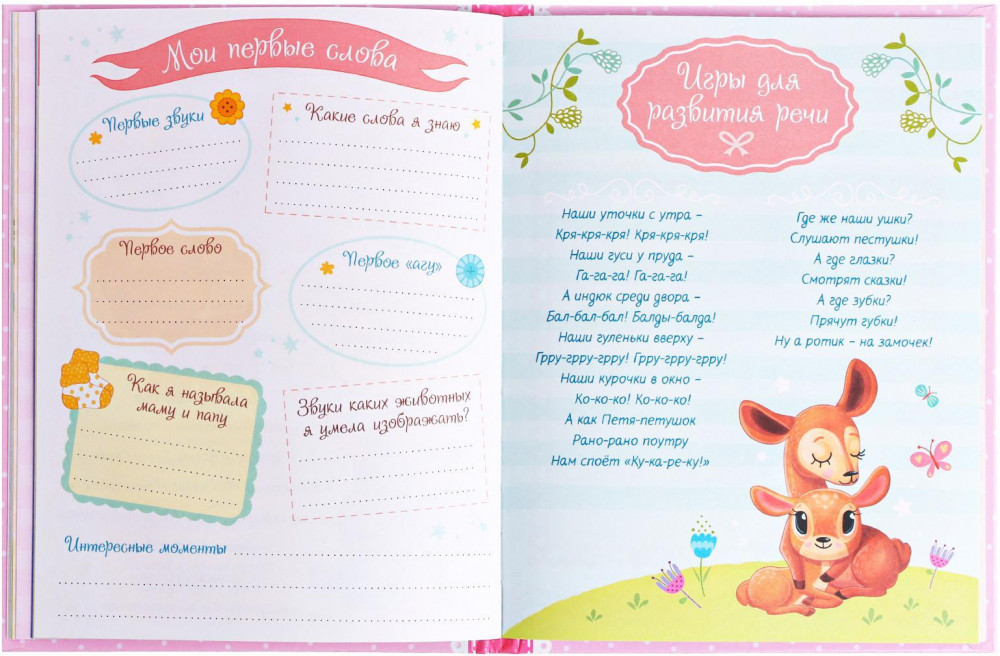 Мои первые слова
Первые звуки
Какие слова я знаю
Первое слово
Первое «агу»
Как я называла
маму и папу
Звуки каких животных
я умела изображать?
Интересные моменты
Игры для
развития речи
Наши уточки с утра –
Кря-кря-кря! Кря-кря-кря!
Наши гуси у пруда –
Га-га-га! Га-га-га!
А индюк среди двора –
Бал-бал-бал! Балды-балда!
Наши гуленьки вверху –
Грру-грру-грру! Грру-грру-грру!
Наши курочки в окно –
Ко-ко-ко! Ко-ко-ко!
А как Петя-петушок
Рано-рано поутру
Нам споёт «Ку-ка-ре-ку!»
Где же наши ушки?
Слушают пестушки!
А где глазки?
Смотрят сказки!
А где зубки?
Прячут губки!
Ну а ротик – на замочек!